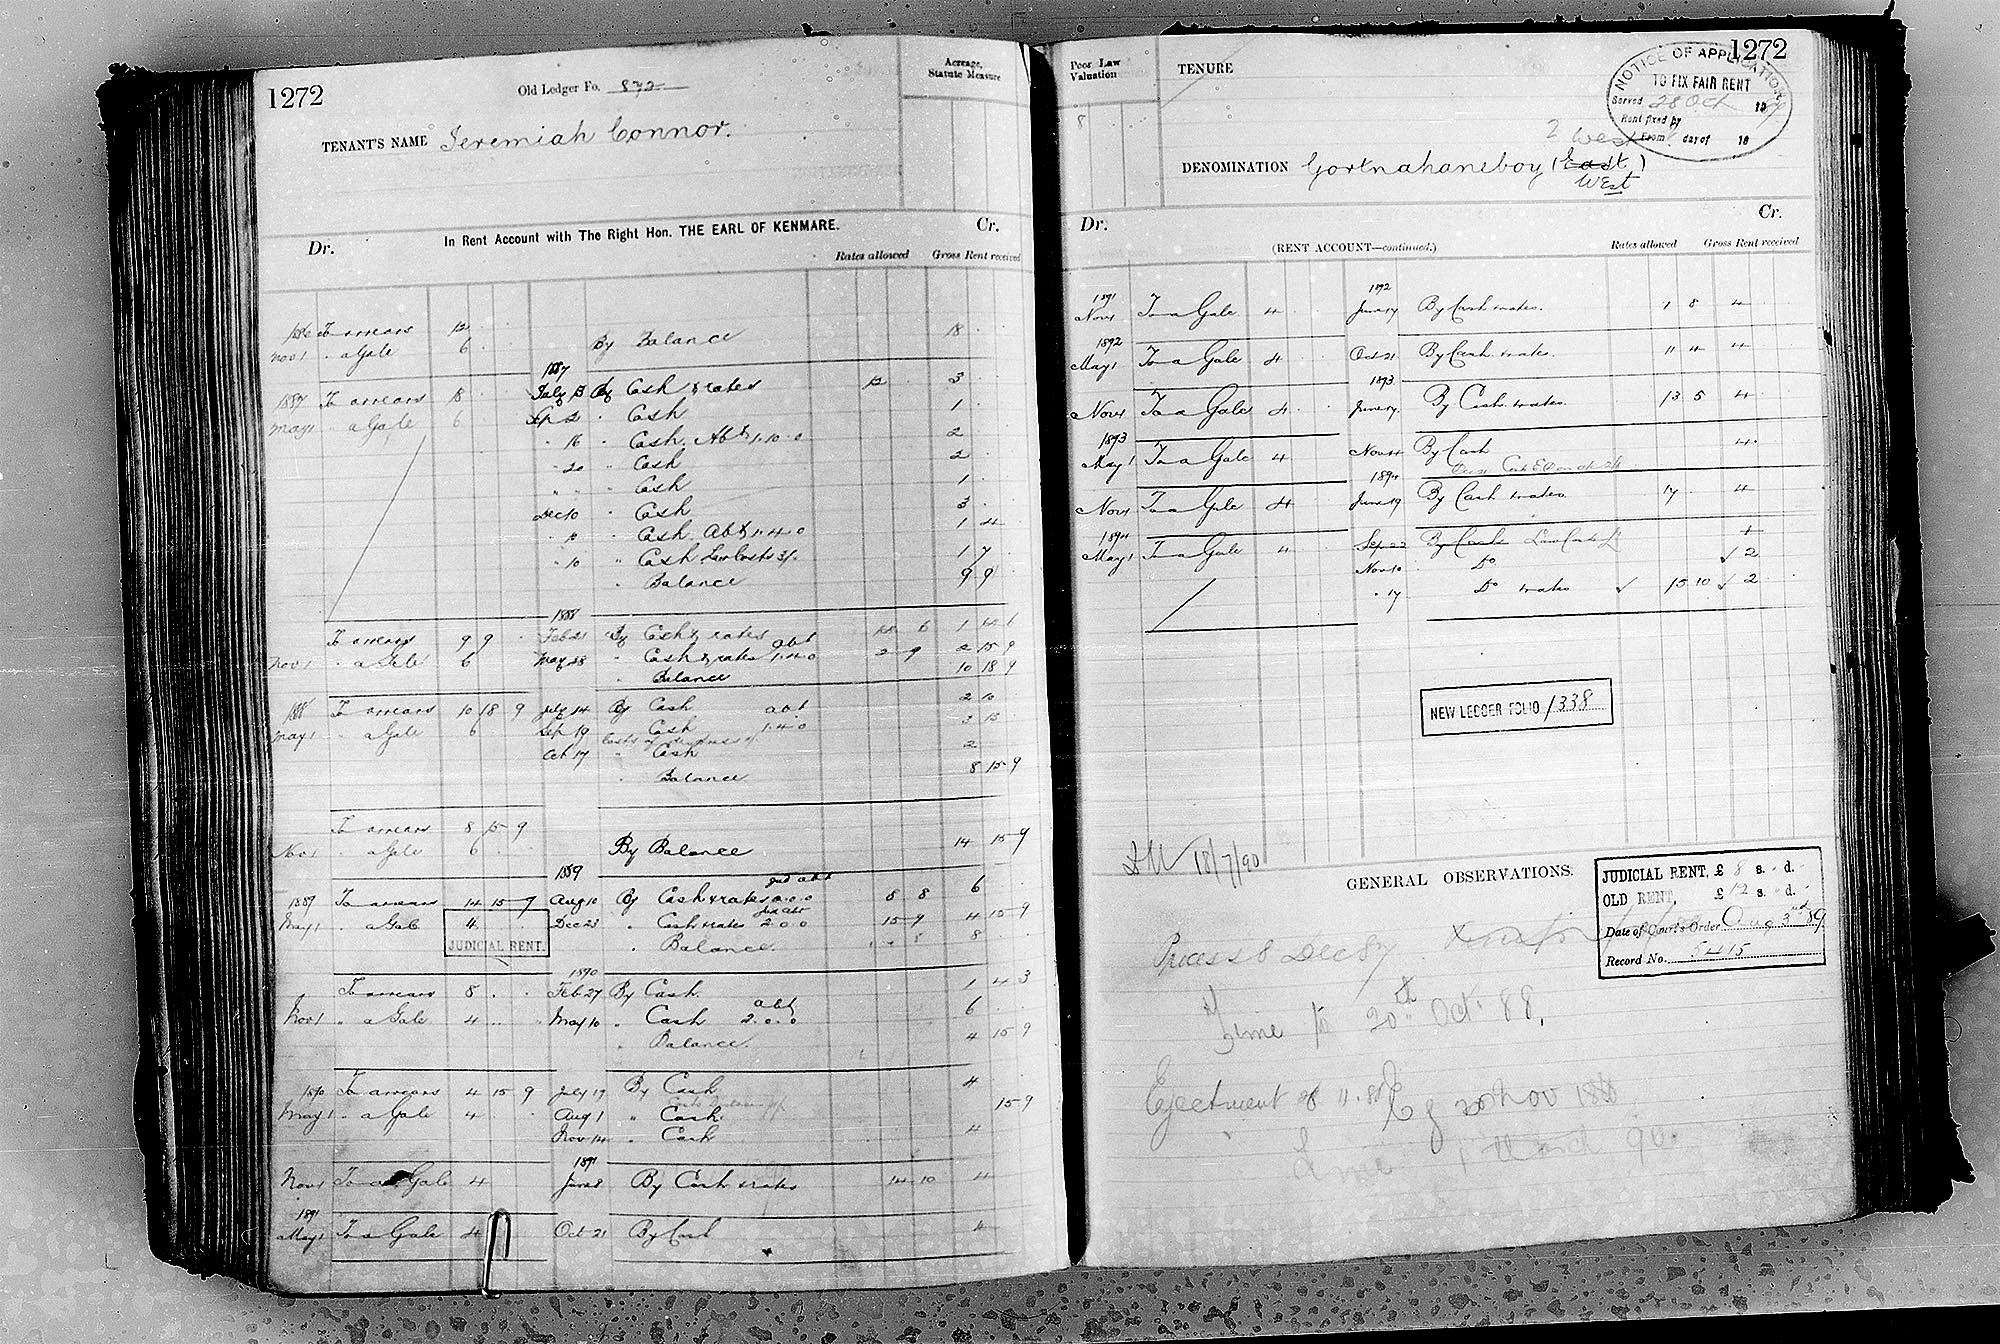 1272
Old Ledger Fo. 872
Acreage, Statute Measure
TENANT'S NAME Jeremiah Connor.
In Rent Account with The Right Hon. THE EARL OF KENMARE.
Dr. Cr.
Rates allowed Gross Rent received
To arrears 12
Nov 1 " a Gale 6 By Balance 18
1887
1887 To arrears 18 July 13 By Cash & rates 12 3
May 1 " a Gale 6 Sep 2 " Cash 1
" 16 " Cash. Abt 1.10.0 2
" 20 " Cash 2
" " " Cash 1
Dec 10 " Cash 3
" " Cash Abt 1.4.0 1 4
" 10 " Cash Law Costs 3/- 1 7
" Balance 9 9
1888
To arrears 9 9 Feb 21 By Cash & rates 6 1
Nov 1 " a Gale 6 May 28 " Cash & rates abt 1.4.0 2 9 2 15 9
" Balance 10 18 9
188 To arrears 10 18 9 July 14 By Cash abt 2 10
May 1 " a Gale 6 Sep 19 " Cash 1.4.0
Oct 17 " Cash 2
" Balance 8 15 9
To arrears 8 15 9
Nov 1 " a Gale 6 By Balance 14 15 9
1889
1889 To arrears 14 15 9 Aug 10 By Cash & rates 8 8 6
May 1 " a Gale 4 Dec 23 " Cash & rates 2.0.0 15 9 4 15 9
JUDICIAL RENT. " Balance 8
1890
To arrears 8 Feb 27 By Cash 1 4 3
Nov 1 " a Gale 4 May 10 " Cash abt 2.0.0 6
" Balance 4 15 9
1890 To arrears 4 15 9 July 19 By Cash 4
May 1 " a Gale 4 Aug 1 " Cash 15 9
Nov 14 " Cash 4
1891
Nov 1 To a Gale 4 June 8 By Cash & rates 14 10 4
1891
May 1 To a Gale 4 Oct 21 By Cash 4
Poor Law Valuation
TENURE
1272
8
NOTICE OF APPLICATION
TO FIX FAIR RENT
Served 28 Oct 18
Rent fixed by
From day of 18
2 West
DENOMINATION Gortnahaneboy (East)
West
Dr. Cr.
(RENT ACCOUNT—continued.)
Rates allowed Gross Rent received
1891 1892
Nov 1 To a Gale 4 June 17 By Cash & rates. 1 8 4
1892
May 1 To a Gale 4 Oct 21 By Cash & rates. 11 4 4
1893
Nov 1 To a Gale 4 June 17 By Cash & rates. 13 5 4
1893
May 1 To a Gale 4 Nov 4 By Cash 4
1894
Nov 1 To a Gale 4 June 19 By Cash & rates 17 4
1894
May 1 To a Gale 4 Sep 22 By Cash Law Costs
Nov 10 Do 2
" 17 Do & rates 15 10 2
NEW LEDGER FOLIO 1338
18/7/90
GENERAL OBSERVATIONS.
JUDICIAL RENT, £ 8 s. - d. -
OLD RENT, £ 12 s. - d. -
Date of Court's Order Aug 3rd 89
Record No. 5415
Process 8 Dec 87
Time to 20th Oct. 88.
Ejectment
Nov 18
March 90.